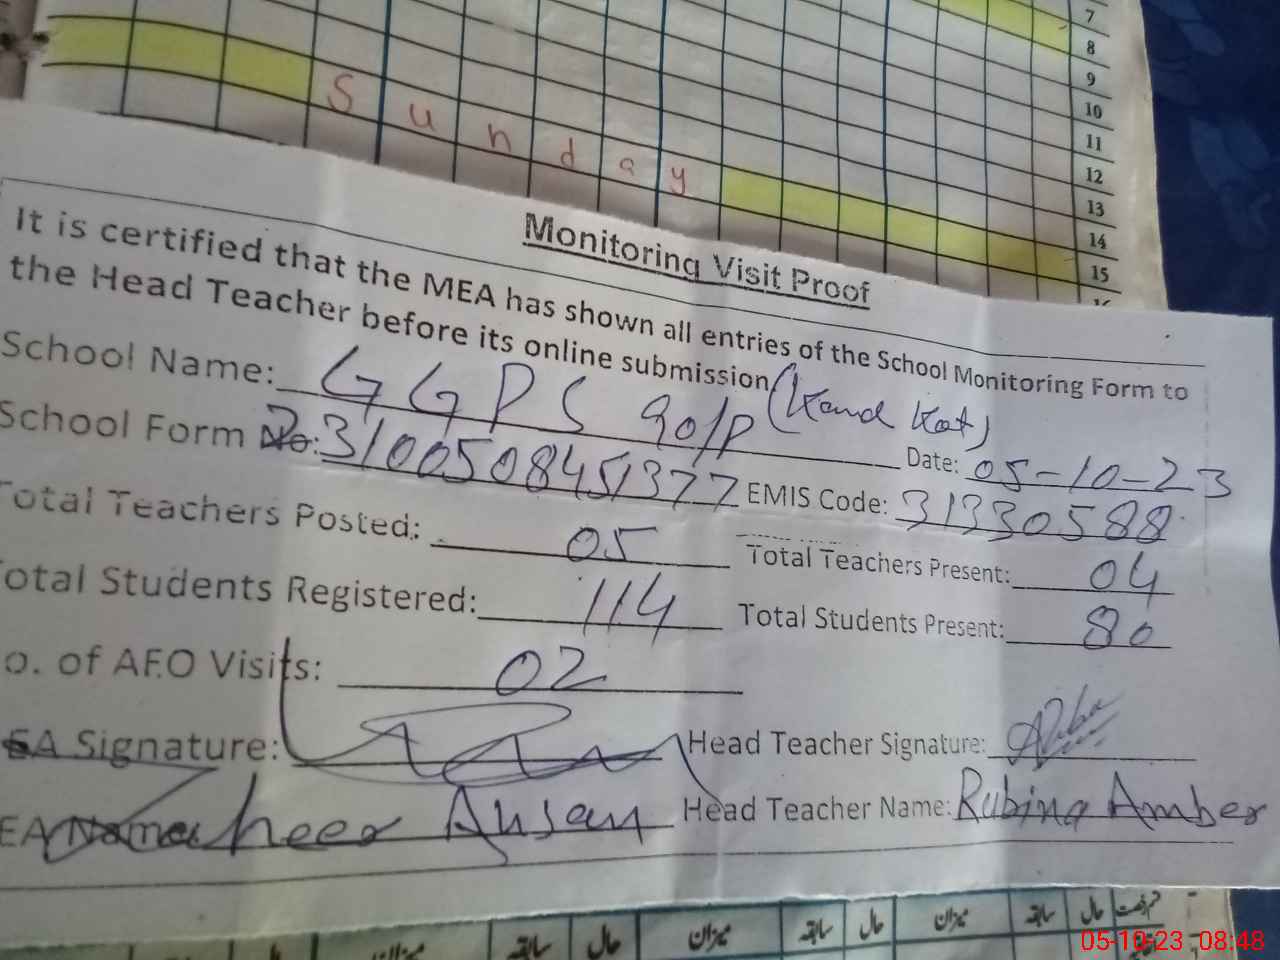 7
8
9
10
11
12
13
14
15
Sunday
Monitoring Visit Proof
It is certified that the MEA has shown all entries of the School Monitoring Form to
the Head Teacher before its online submission
School Name: GGPS 90/P (Kand Kot)
Date: 05-10-23
School Form No: 3100508451377 EMIS Code: 31330588
Total Teachers Posted: 05 Total Teachers Present: 04
Total Students Registered: 114 Total Students Present: 80
o. of AEO Visits: 02
EA Signature: Head Teacher Signature:
EA Name: Zaheer Ahsan Head Teacher Name: Rubina Amber
میزان سابقہ حال میزان سابقہ حال میزان سابقہ حال
05-10-23 08:48